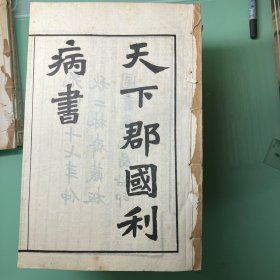 天下郡國利
病書